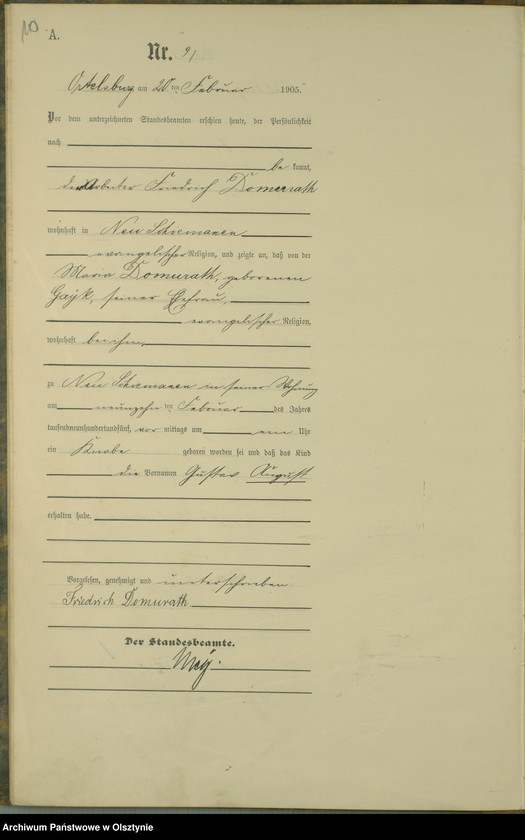 10
A.
Nr. 91
Ortelsburg am 20ten Februar 1905.
Vor dem unterzeichneten Standesbeamten erschien heute, der Persönlichkeit
nach
be kannt,
der Arbeiter Friedrich Domurath
wohnhaft in Neu Schiemanen
evangelischer Religion, und zeigte an, daß von der
Maria Domurath, geborenen
Gayk, seiner Ehefrau,
evangelischer Religion,
wohnhaft bei ihm,
zu Neu Schiemanen in seiner Wohnung
am neunzehnten Februar des Jahres
tausendneunhundertundfünf, vor mittags um ein Uhr
ein Knabe geboren worden sei und daß das Kind
die Vornamen Gustav August
erhalten habe.
Vorgelesen, genehmigt und unterschrieben
Friedrich Domurath
Der Standesbeamte.
Archiwum Państwowe w Olsztynie